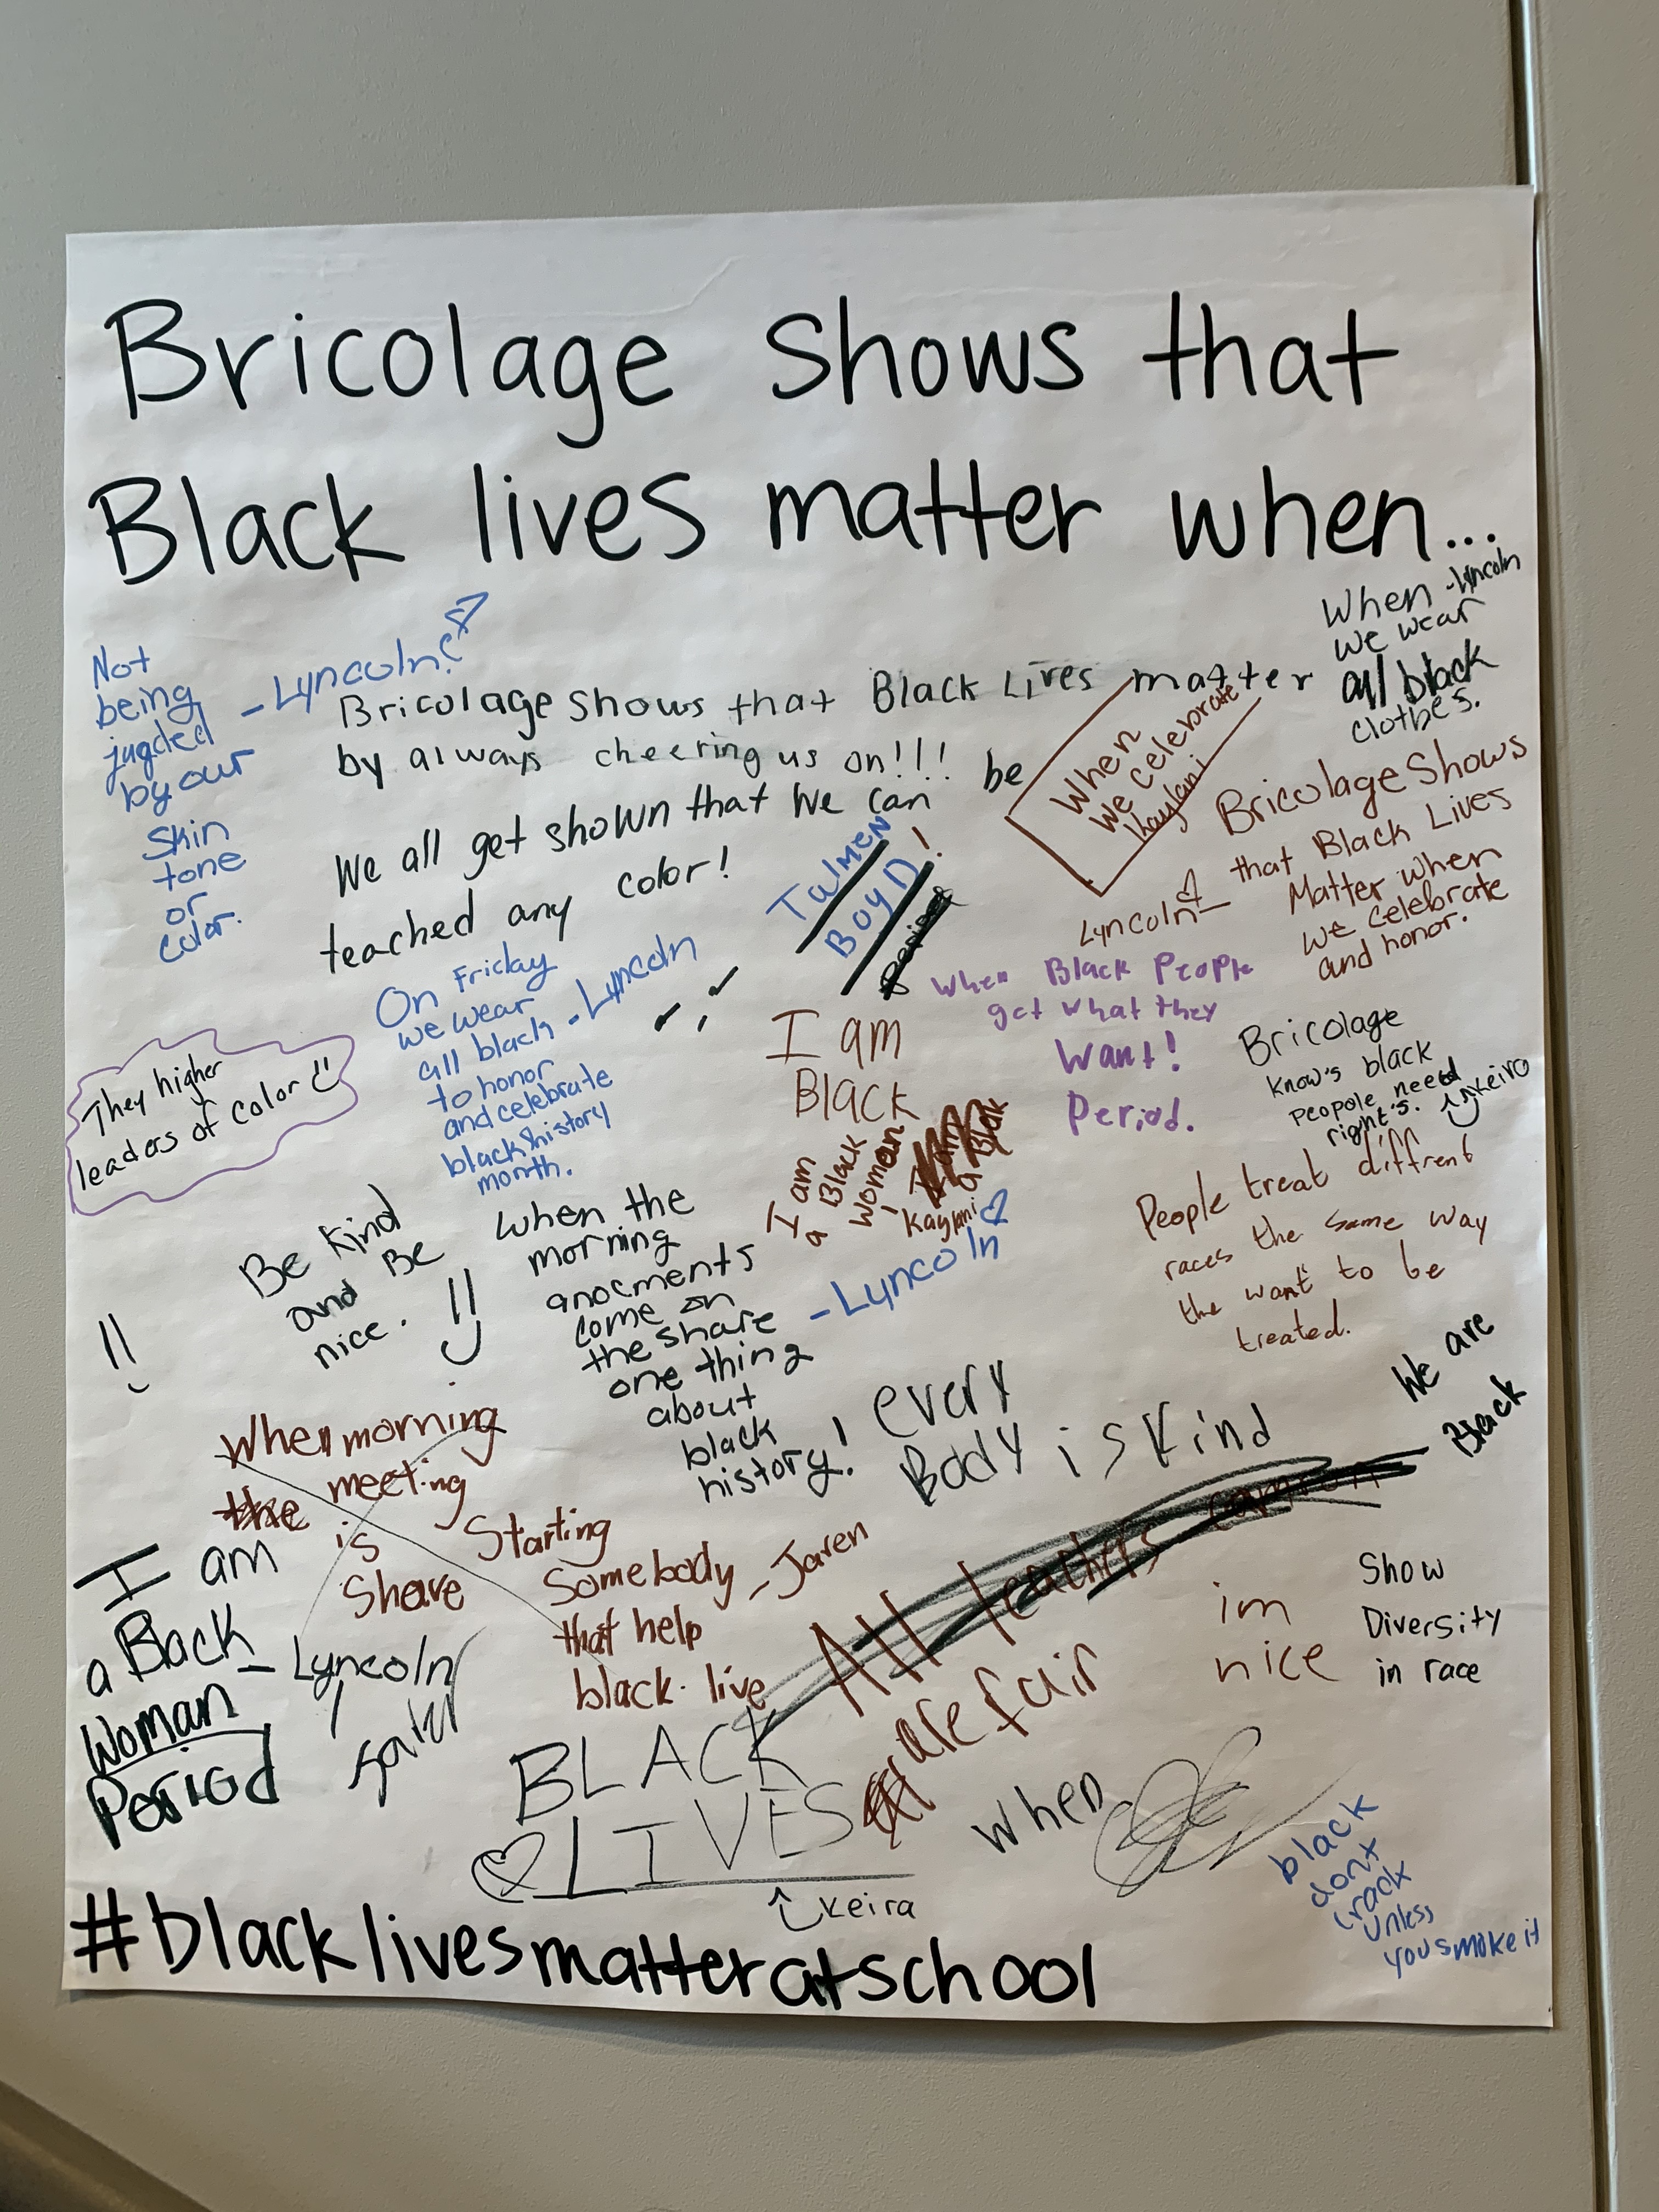 Bricolage shows that
Black lives matter when...
Not
being
jugded
by our
skin
tone
or
color.
-Lyncoln
Bricolage shows that Black Lives matter
by always cheering us on!!!
We all get shown that we can be
teached any color!
When
we celebrate
Kaylani
When -Lyncoln
we wear
all black
clothes.
Bricolage Shows
that Black Lives
Matter when
we celebrate
and honor.
Lyncoln-
Talmen
Boyd!
On Friday
we wear
all black -Lyncoln
to honor
and celebrate
black history
month.
They higher
leaders of color
I am
Black
When Black People
get what they
Want!
Period.
Bricolage
know's black
peopole need
right's. Keira
I am
a Black
Woman!
Kaylani
People treat diffrent
races the same way
the want to be
treated.
Be kind
and Be
nice.
when the
morning
anocments
come on
the share
one thing
about
black
history!
-Lyncoln
every
Body is kind
We are
Black
When morning
the meeting
is
Share
Starting
Somebody -Jaren
that help
black live
I am
a Black
Woman
Period
-Lyncoln
All teachers
are fair
im
nice
Show
Diversity
in race
BLACK
LIVES
Keira
when
black
dont
crack
unless
you smoke it
#blacklivesmatteratschool